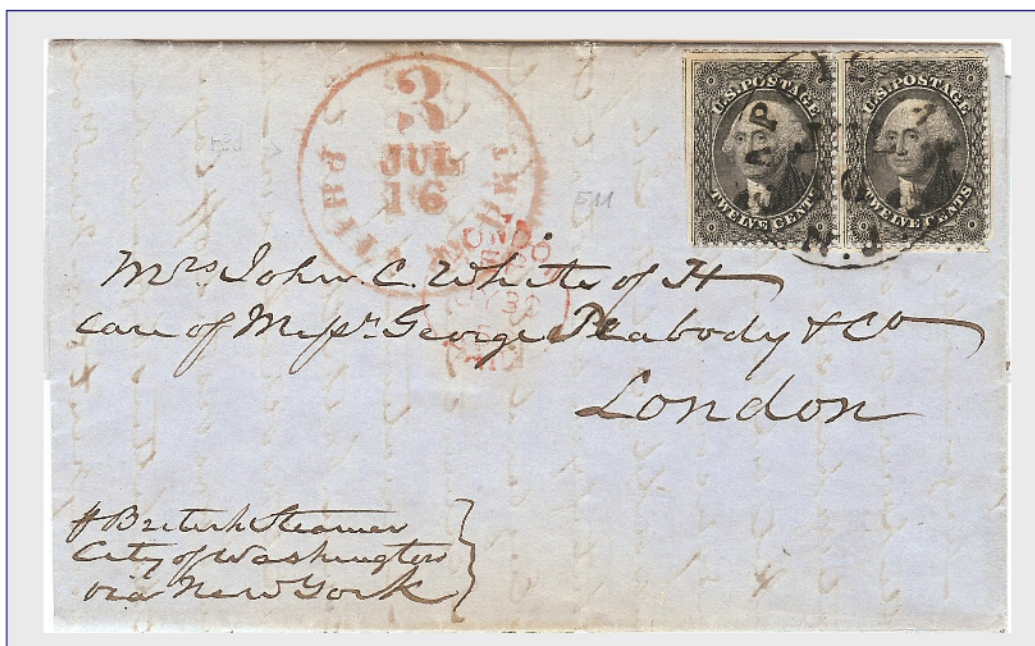 3
JUL
16
U.S. POSTAGE
TWELVE CENTS
U.S. POSTAGE
TWELVE CENTS
Mrs John. C. White of H
care of Messrs. George Peabody & Co
London
British Steamer
City of Washington
via New York